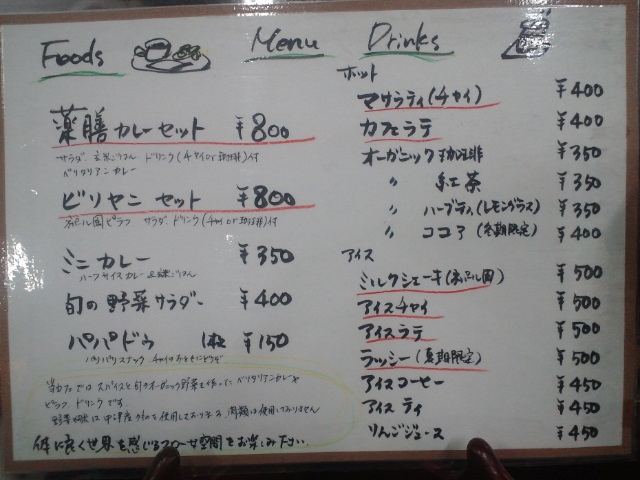 Foods
Menu
Drinks
薬膳カレーセット ¥800
サラダ 玄米ごはん ドリンク(チャイor珈琲)付
ベジタリアンカレー
ビリヤニ セット ¥800
ネパール風ピラフ サラダ・ドリンク(チャイor珈琲)付
ミニカレー ¥350
ハーフサイズカレー 玄米ごはん
旬の野菜サラダー ¥400
パパドゥ 1枚 ¥150
パリパリスナック チャイのおともにどうぞ
当カフェでは スパイスと旬のオーガニック野菜を使ったベジタリアンカレーと
ピラフ、ドリンクです。
野菜 は 中津産 を使用しております 肉類は使用しておりません
体に良く世界を感じるフローな空間をお楽み下さい。
ホット
マサラティ(チャイ) ¥400
カフェラテ ¥400
オーガニック珈琲 ¥350
〃 紅茶 ¥350
〃 ハーブティ(レモングラス) ¥350
〃 ココア (冬期限定) ¥400
アイス
ミルクシェーキ(ネパール風) ¥500
アイスチャイ ¥500
アイスラテ ¥500
ラッシー(夏期限定) ¥500
アイスコーヒー ¥450
アイスティ ¥450
りんごジュース ¥450